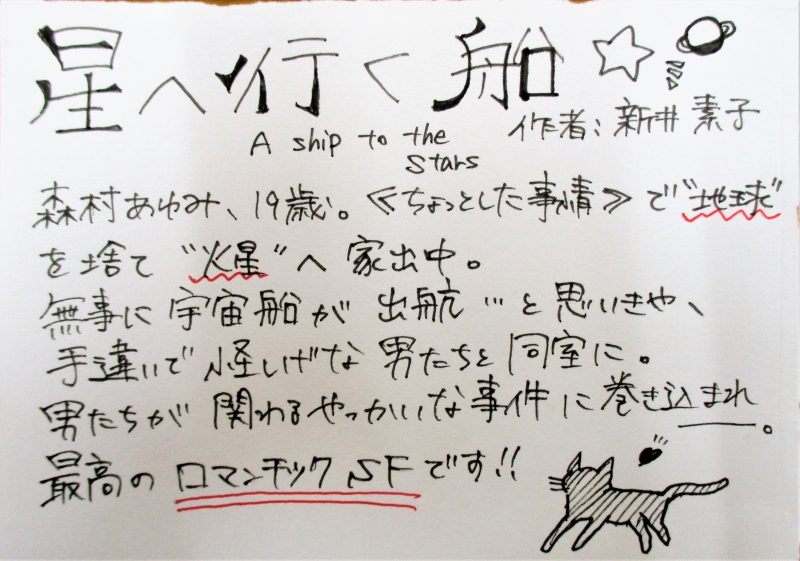 星へ行く船
A ship to the
Stars
作者:新井素子
森村あゆみ、19歳。≪ちょっとした事情≫で"地球"
を捨て"火星"へ家出中。
無事に宇宙船が出航…と思いきや、
手違いで怪しげな男たちと同室に。
男たちが関わるやっかいな事件に巻き込まれ。
最高のロマンチックSFです!!